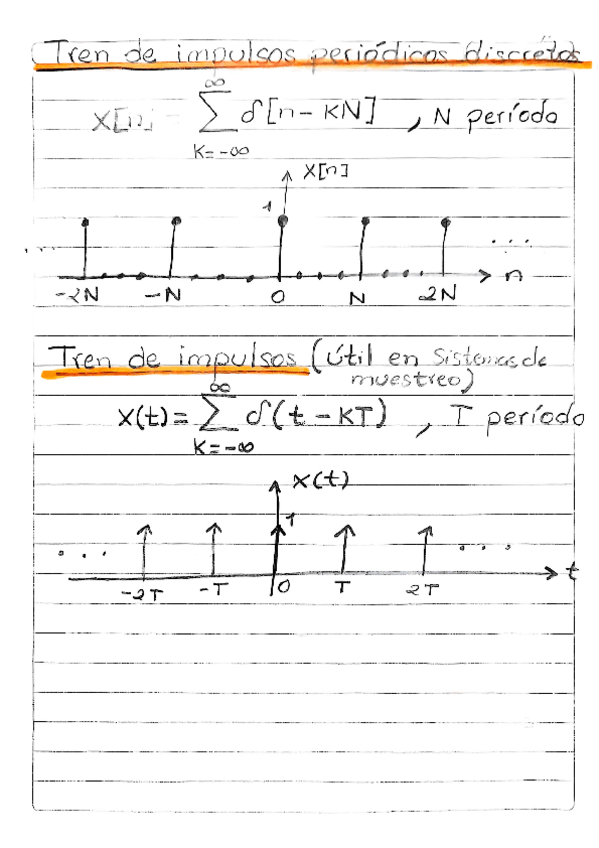 Tren de impulsos periódicos discretos
∞
x[n] = ∑ δ[n - KN] , N período
K=-∞
x[n]
1
... ...
-2N -N 0 N 2N n
Tren de impulsos (útil en Sistemas de
muestreo)
∞
x(t) = ∑ δ(t - KT) , T período
K=-∞
x(t)
1
... ...
-2T -T 0 T 2T t